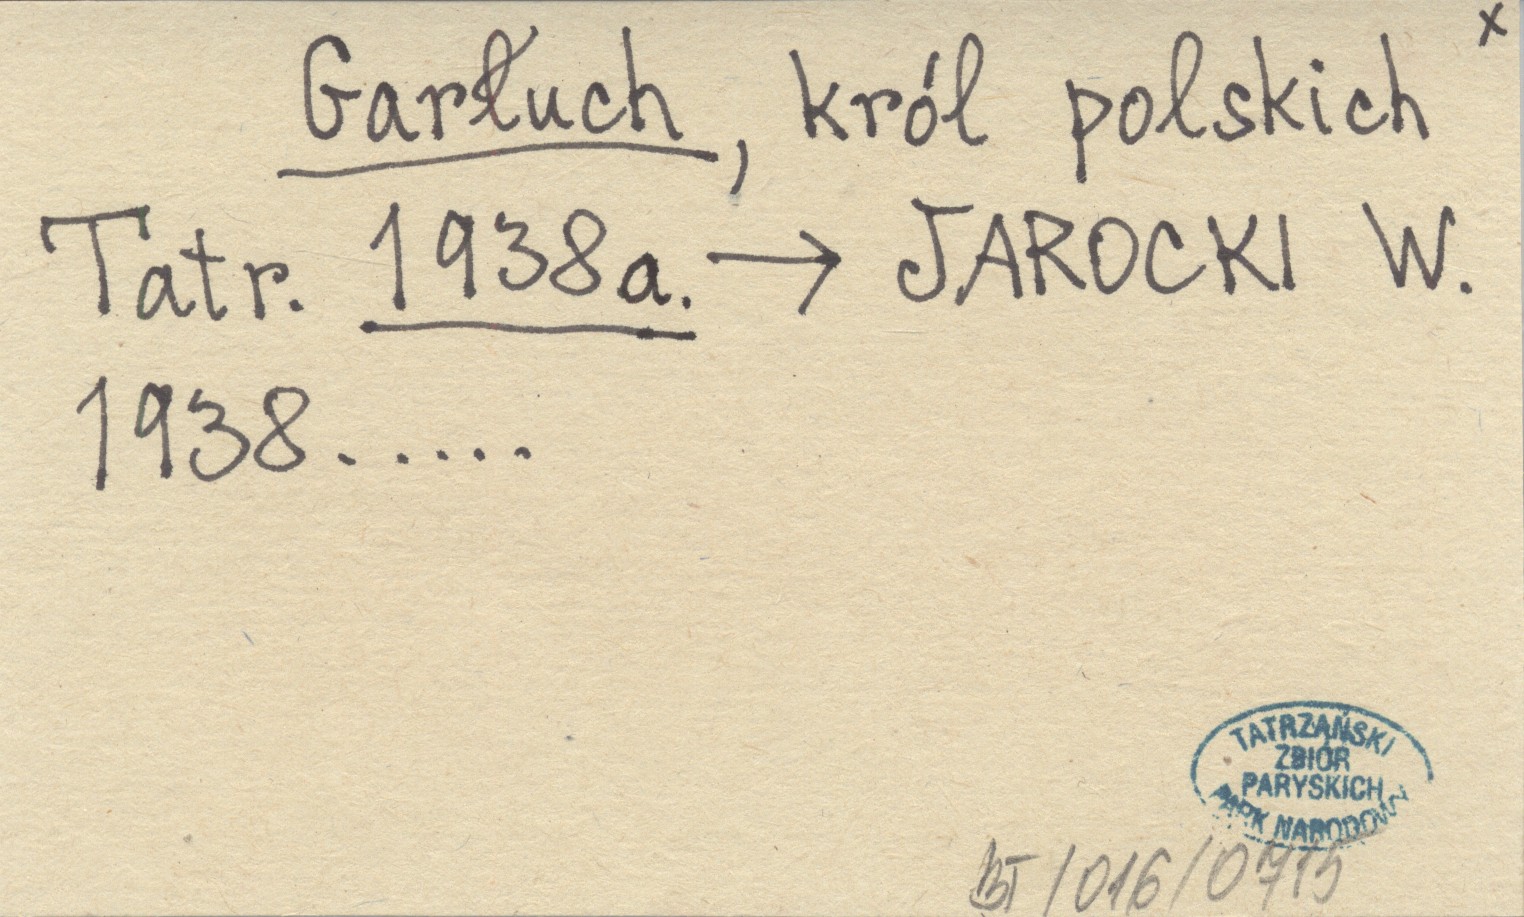 x
Garłuch, król polskich
Tatr. 1938a. → JAROCKI W.
1938......
TATRZAŃSKI
ZBIÓR
PARYSKICH
PARK NARODOWY
BT/016/0715